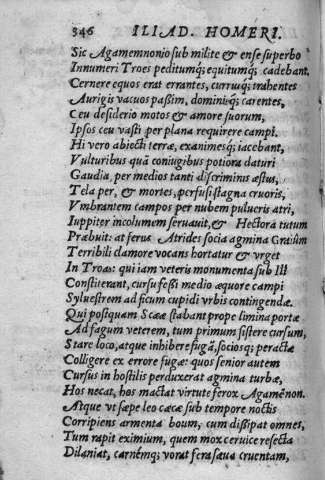 346 ILIAD. HOMERI.
Sic Agamemnonio sub milite & ense superbo
Innumeri Troes peditumq́; equitumq́; cadebant.
Cernere equos erat errantes, currusq́; trahentes
Aurigis vacuos paßim, dominisq́; carentes,
Ceu desiderio motos & amore suorum,
Ipsos ceu vasti per plana requirere campi.
Hi vero abiecti terræ, exanimesq́; iacebant,
Vulturibus quã coniugibus potiora daturi
Gaudia, per medios tanti discriminis æstus,
Tela per, & mortes, perfusi stagna cruoris,
Vmbrantem campos per nubem pulueris atri,
Iuppiter incolumem seruauit, & Hectora tutum
Præbuit: at ferus Atrides socia agmina Graiûm
Terribili clamore vocans hortatur & vrget
In Troas: qui iam veteris monumenta sub Ili
Constiterant, cursu feßi medio æquore campi
Syluestrem ad ficum cupidi vrbis contingendæ.
Qui postquam Scææ stabant prope limina portæ
Ad fagum veterem, tum primum sistere cursum,
Stare loco, atque inhibere fugã, sociosq́; peractæ
Colligere ex errore fugæ: quos senior autem
Cursus in hostilis perduxerat agmina turbæ,
Hos necat, hos mactat virtute ferox Agamẽnon.
Atque vt sæpe leo cæcæ sub tempore noctis
Corripiens armenta boum, cum dißipat omnes,
Tum rapit eximium, quem mox ceruice resecta
Dilaniat, carnẽmq́; vorat fera sæua cruentam,